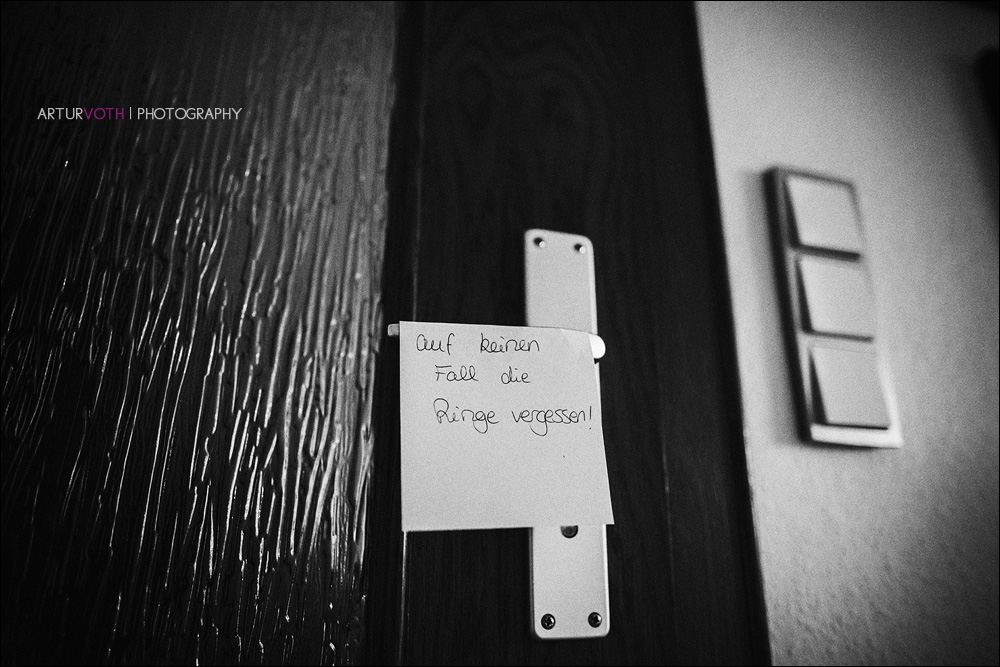 ARTURVOTH | PHOTOGRAPHY
auf keinen
Fall die
Ringe vergessen!